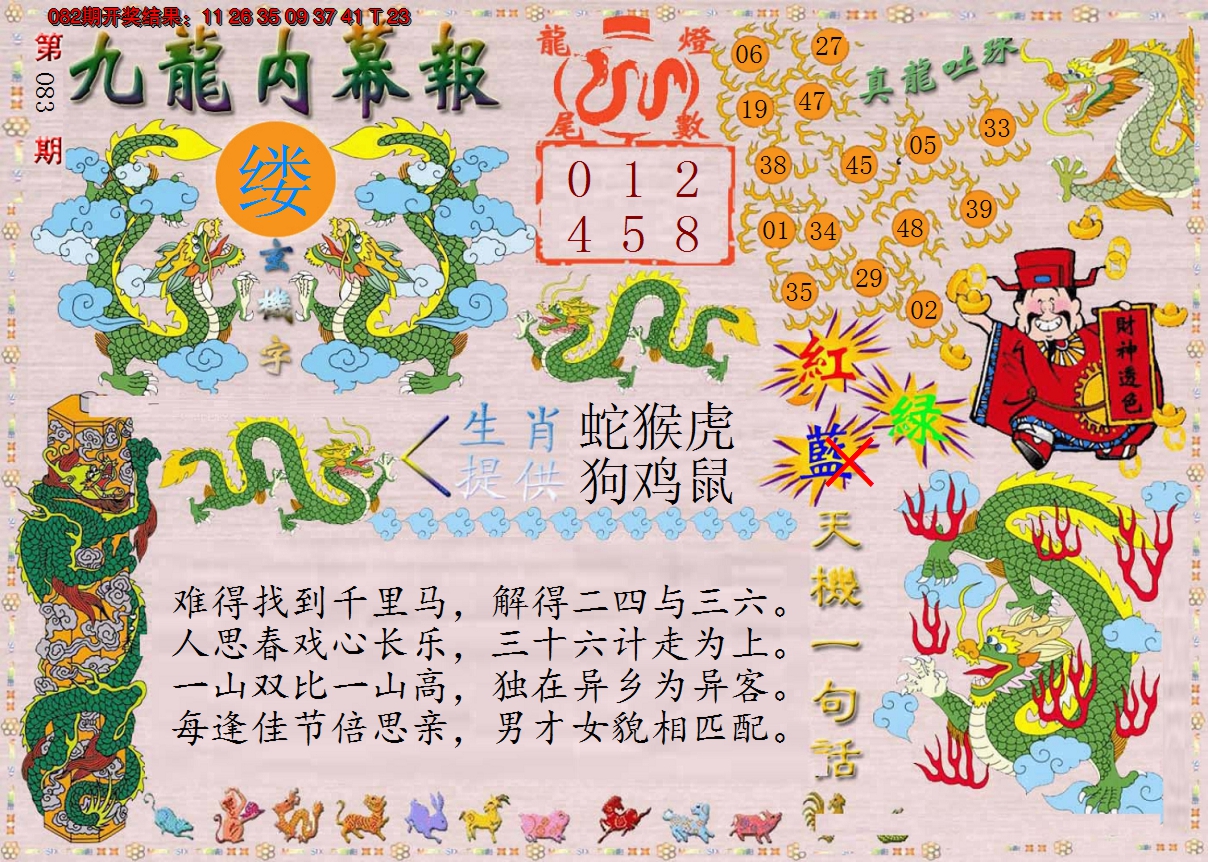 082期开奖结果：11 26 35 09 37 41 T 23
第083期
九龍内幕報
缕
玄機字
龍燈尾數
0 1 2
4 5 8
真龍吐珠
06 27
19 47
38 45 05 33
01 34 48 39
35 29 02
財神透色
紅
綠
藍
生肖提供
蛇猴虎
狗鸡鼠
难得找到千里马，解得二四与三六。
人思春戏心长乐，三十六计走为上。
一山双比一山高，独在异乡为异客。
每逢佳节倍思亲，男才女貌相匹配。
天機一句話